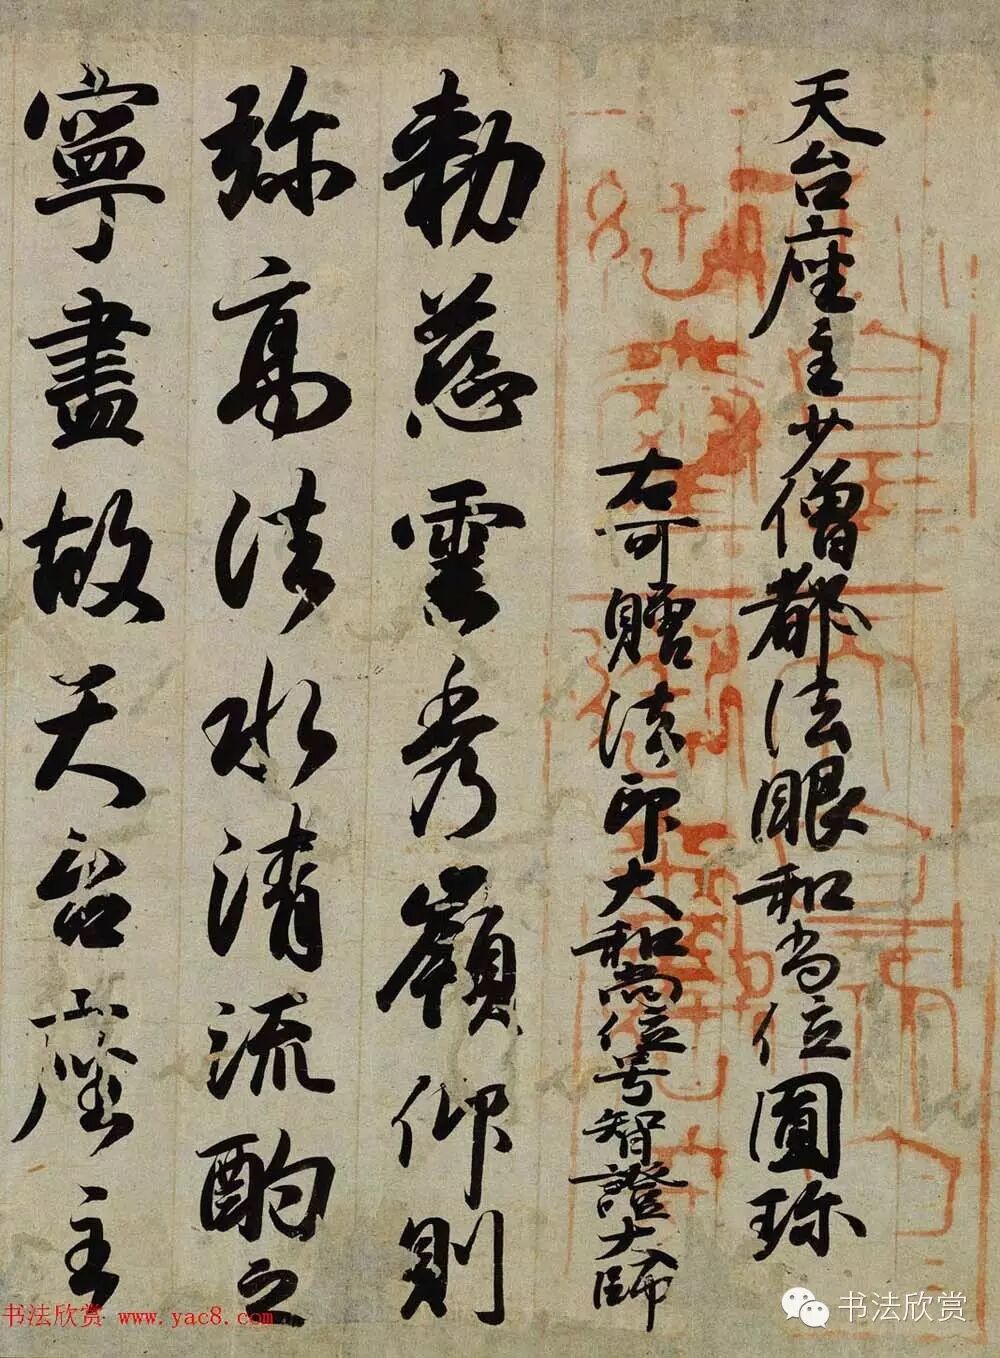 天台座主少僧都法眼和尚位圓珎
右可贈法印大和尚位号智證大師
勅慈雲秀嶺仰則
弥高法水清流酌之
寧盡故天台座主
书法欣赏 www.yac8.com
书法欣赏